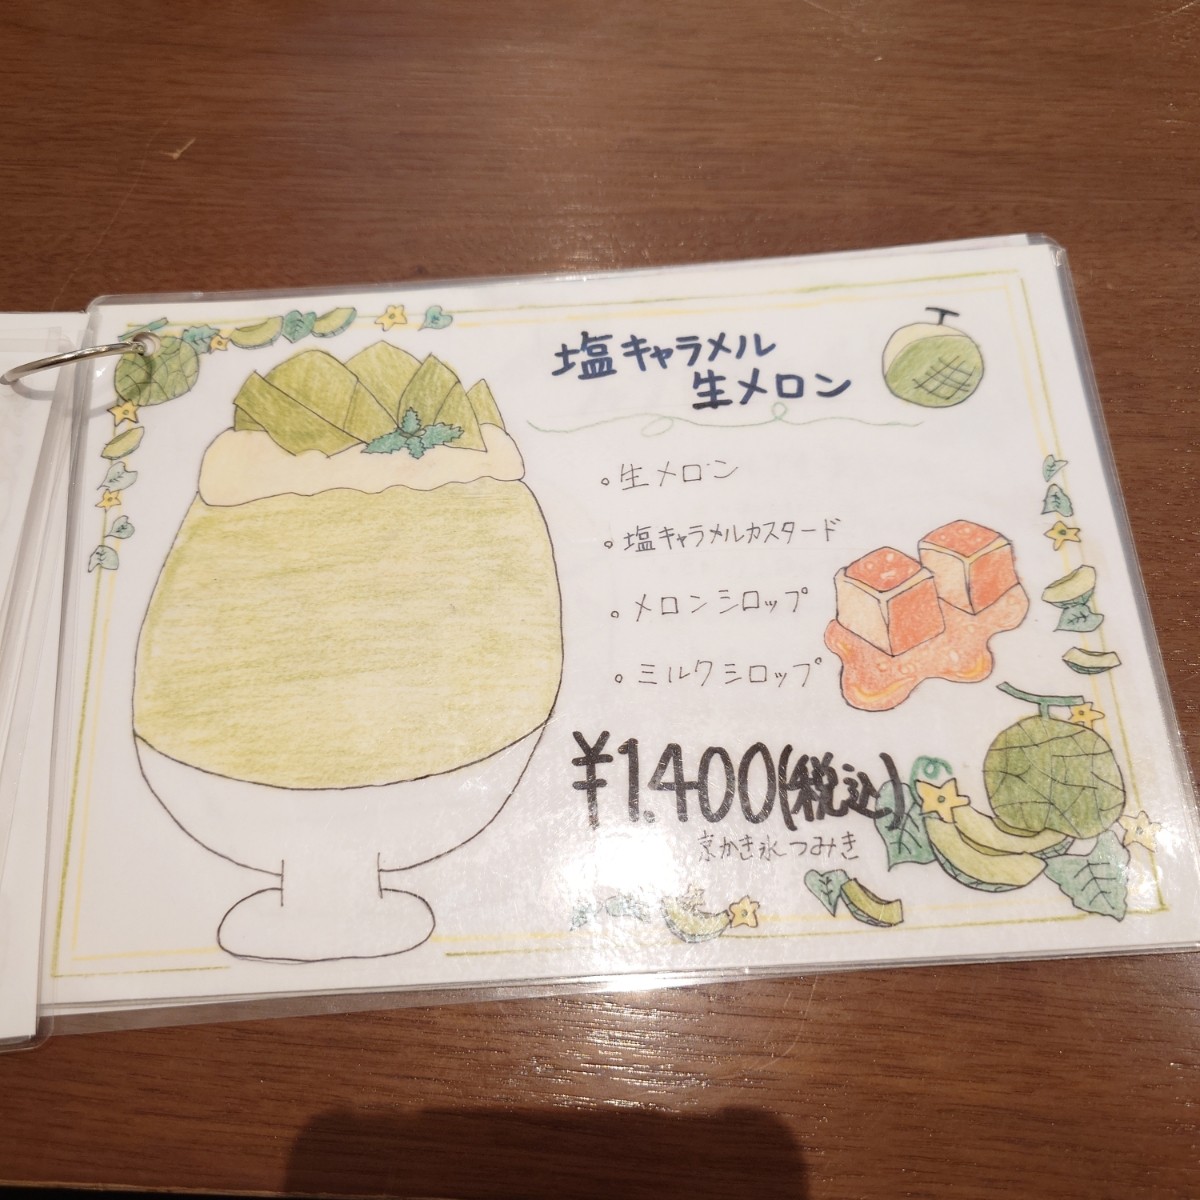 塩キャラメル
生メロン
。生メロン
。塩キャラメルカスタード
。メロンシロップ
。ミルクシロップ
¥1.400(税込)
京かき氷つみき